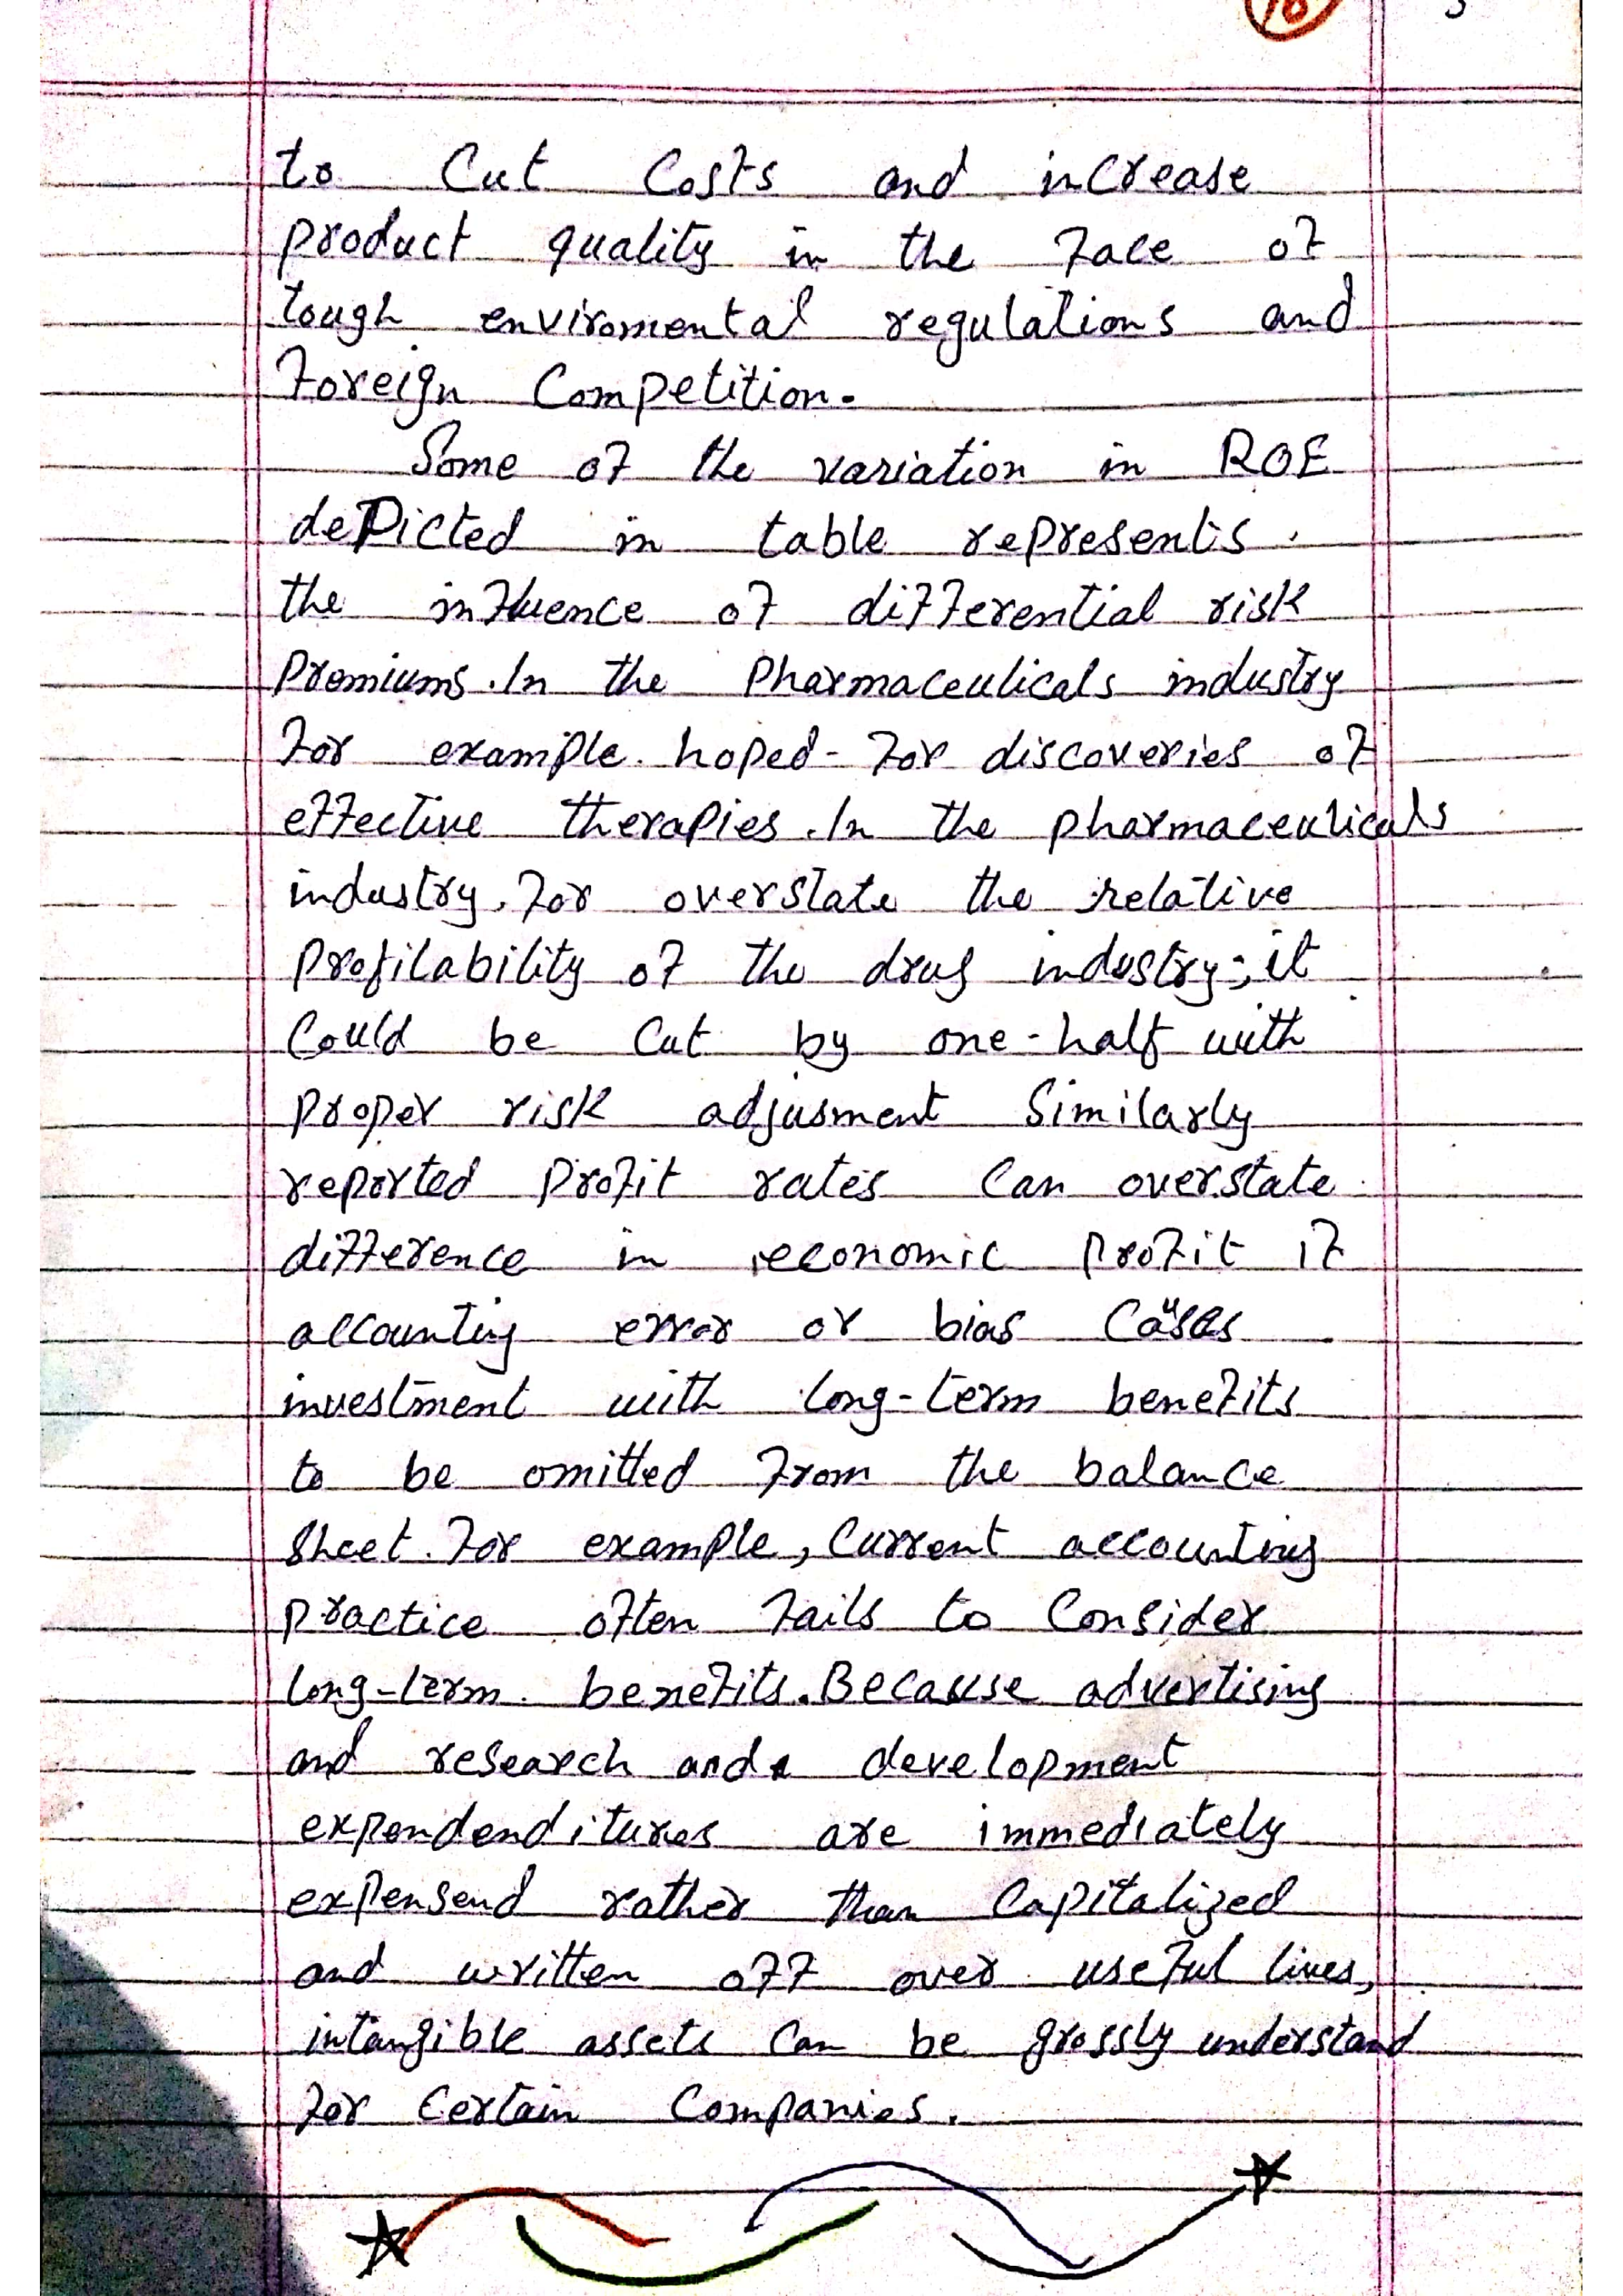 10
to Cut Costs and increase
product quality in the face of
tough enviromental regulations and
foreign Competition.
Some of the variation in ROE
depicted in table represents
the influence of differential risk
premiums. In the Pharmaceuticals industry
for example. hoped-for discoveries of
effective therapies. In the pharmaceuticals
industry, for overstate the relative
profitability of the drug industry; it
Could be Cut by one-half with
proper risk adjusment Similarly
reported profit rates Can overstate
difference in economic profit if
accounting error or bias
investment with long-term benefits
to be omitted from the balance
Sheet. For example, Current accounting
practice often fails to Consider
long-term. benefits. Because advertising
and research and development
expendenditures are immediately
expensend rather than Capitalized
and written off over useful lives,
intangible assets Can be grossly understand
for Certain Companies.